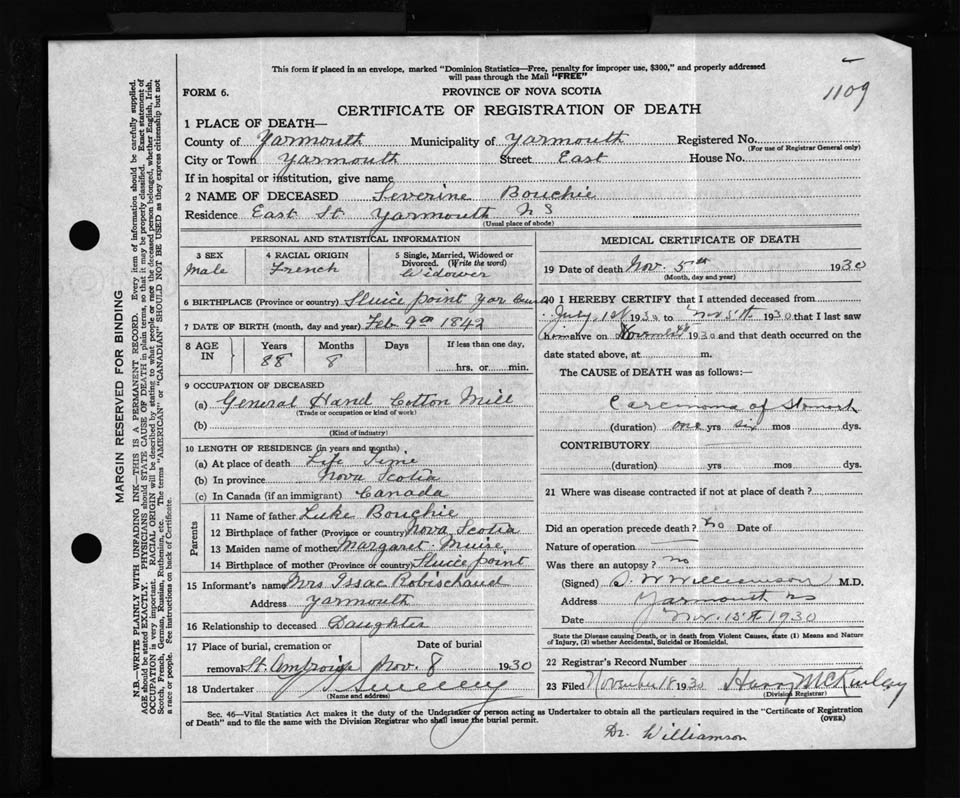 This form if placed in an envelope, marked "Dominion Statistics—Free, penalty for improper use, $300," and properly addressed
will pass through the Mail "FREE"
1109
FORM 6.
PROVINCE OF NOVA SCOTIA
CERTIFICATE OF REGISTRATION OF DEATH
1 PLACE OF DEATH—
County of Yarmouth Municipality of Yarmouth Registered No.
(For use of Registrar General only)
City or Town Yarmouth Street East House No.
If in hospital or institution, give name
2 NAME OF DECEASED Severine Bouchie
Residence East St Yarmouth N S
(Usual place of abode)
PERSONAL AND STATISTICAL INFORMATION
3 SEX 4 RACIAL ORIGIN 5 Single, Married, Widowed or
Divorced. (Write the word)
Male French Widower
6 BIRTHPLACE (Province or country) Sluice point Yar
7 DATE OF BIRTH (month, day and year) Feb 9th 1842
8 AGE IN Years Months Days If less than one day,
88 8 hrs. or min.
9 OCCUPATION OF DECEASED
(a) General Hand Cotton Mill
(Trade or occupation or kind of work)
(b)
(Kind of industry)
10 LENGTH OF RESIDENCE (in years and months)
(a) At place of death Life Time
(b) In province Nova Scotia
(c) In Canada (if an immigrant) Canada
Parents
11 Name of father Luke Bouchie
12 Birthplace of father (Province or country) Nova Scotia
13 Maiden name of mother Margaret Muise
14 Birthplace of mother (Province or country) Sluice point
15 Informant's name Mrs Issac Robischaud
Address Yarmouth
16 Relationship to deceased Daughter
17 Place of burial, cremation or Date of burial
removal St. Ambroise Nov. 8 1930
18 Undertaker Sweeny
(Name and address)
MEDICAL CERTIFICATE OF DEATH
19 Date of death Nov. 5th 1930
(Month, day and year)
20 I HEREBY CERTIFY that I attended deceased from
July 1st 1930 to Nov 5th 1930 that I last saw
him alive on 1930 and that death occurred on the
date stated above, at m.
The CAUSE of DEATH was as follows:—
Carcinoma of Stomach
(duration) one yrs six mos dys.
CONTRIBUTORY
(duration) yrs mos dys.
21 Where was disease contracted if not at place of death?
Did an operation precede death? No Date of
Nature of operation
Was there an autopsy? no
(Signed) S. W Williamson M.D.
Address Yarmouth NS
Date Nov. 15th 1930
State the Disease causing Death, or in death from Violent Causes, state (1) Means and Nature
of Injury, (2) whether Accidental, Suicidal or Homicidal.
22 Registrar's Record Number
23 Filed November 18 1930 Harry McKinlay
(Division Registrar)
Sec. 46—Vital Statistics Act makes it the duty of the Undertaker or person acting as Undertaker to obtain all the particulars required in the "Certificate of Registration
of Death" and to file the same with the Division Registrar who shall issue the burial permit.
(OVER)
Dr. Williamson
MARGIN RESERVED FOR BINDING
N.B.—WRITE PLAINLY WITH UNFADING INK—THIS IS A PERMANENT RECORD. Every item of information should be carefully supplied.
AGE should be stated EXACTLY. PHYSICIANS should STATE CAUSE OF DEATH in plain terms, so that it may be properly classified. Exact statement of
OCCUPATION is very important. RACIAL ORIGIN will be described by stating to what people or race the deceased person belonged, whether English, Irish,
Scotch, French, German, Russian, Ruthenian, etc. The terms "AMERICAN" or "CANADIAN" SHOULD NOT BE USED as they express citizenship but not
a race or people. See instructions on back of Certificate.